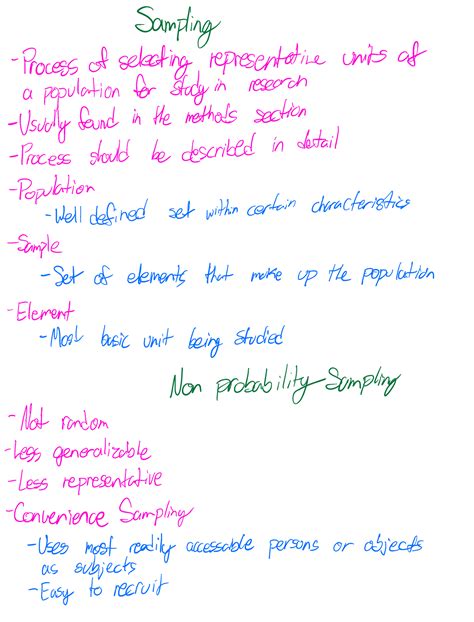 Sampling
-Process of selecting representative units of
a population for study in research
-Usually found in the methods section
-Process should be described in detail
-Population
-Well defined set within certain characteristics
-Sample
-Set of elements that make up the population
-Element
-Most basic unit being studied
Non probability Sampling
-Not random
-Less generalizable
-Less representative
-Convenience Sampling
-Uses most readily accessable persons or objects
as subjects
-Easy to recruit